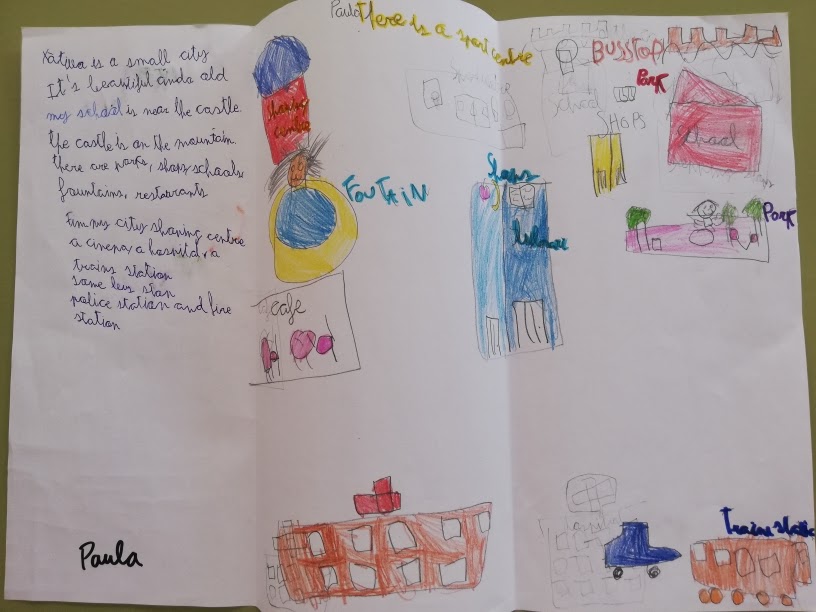 Xàtiva is a small city
It's beautiful anda old
my school is near the castle.
the castle is on the mountain.
there are parks, shops, schools
fountains, restaurants
shaping centre
a cinema, a hospital, a
trains station
same bus stop
police station and fire
station
Paula
Paula
There is a sport centre
shoping
centre
FOUTAIN
cafe
Shops
BUSSTOP
Park
SHOPS
School
School
Park